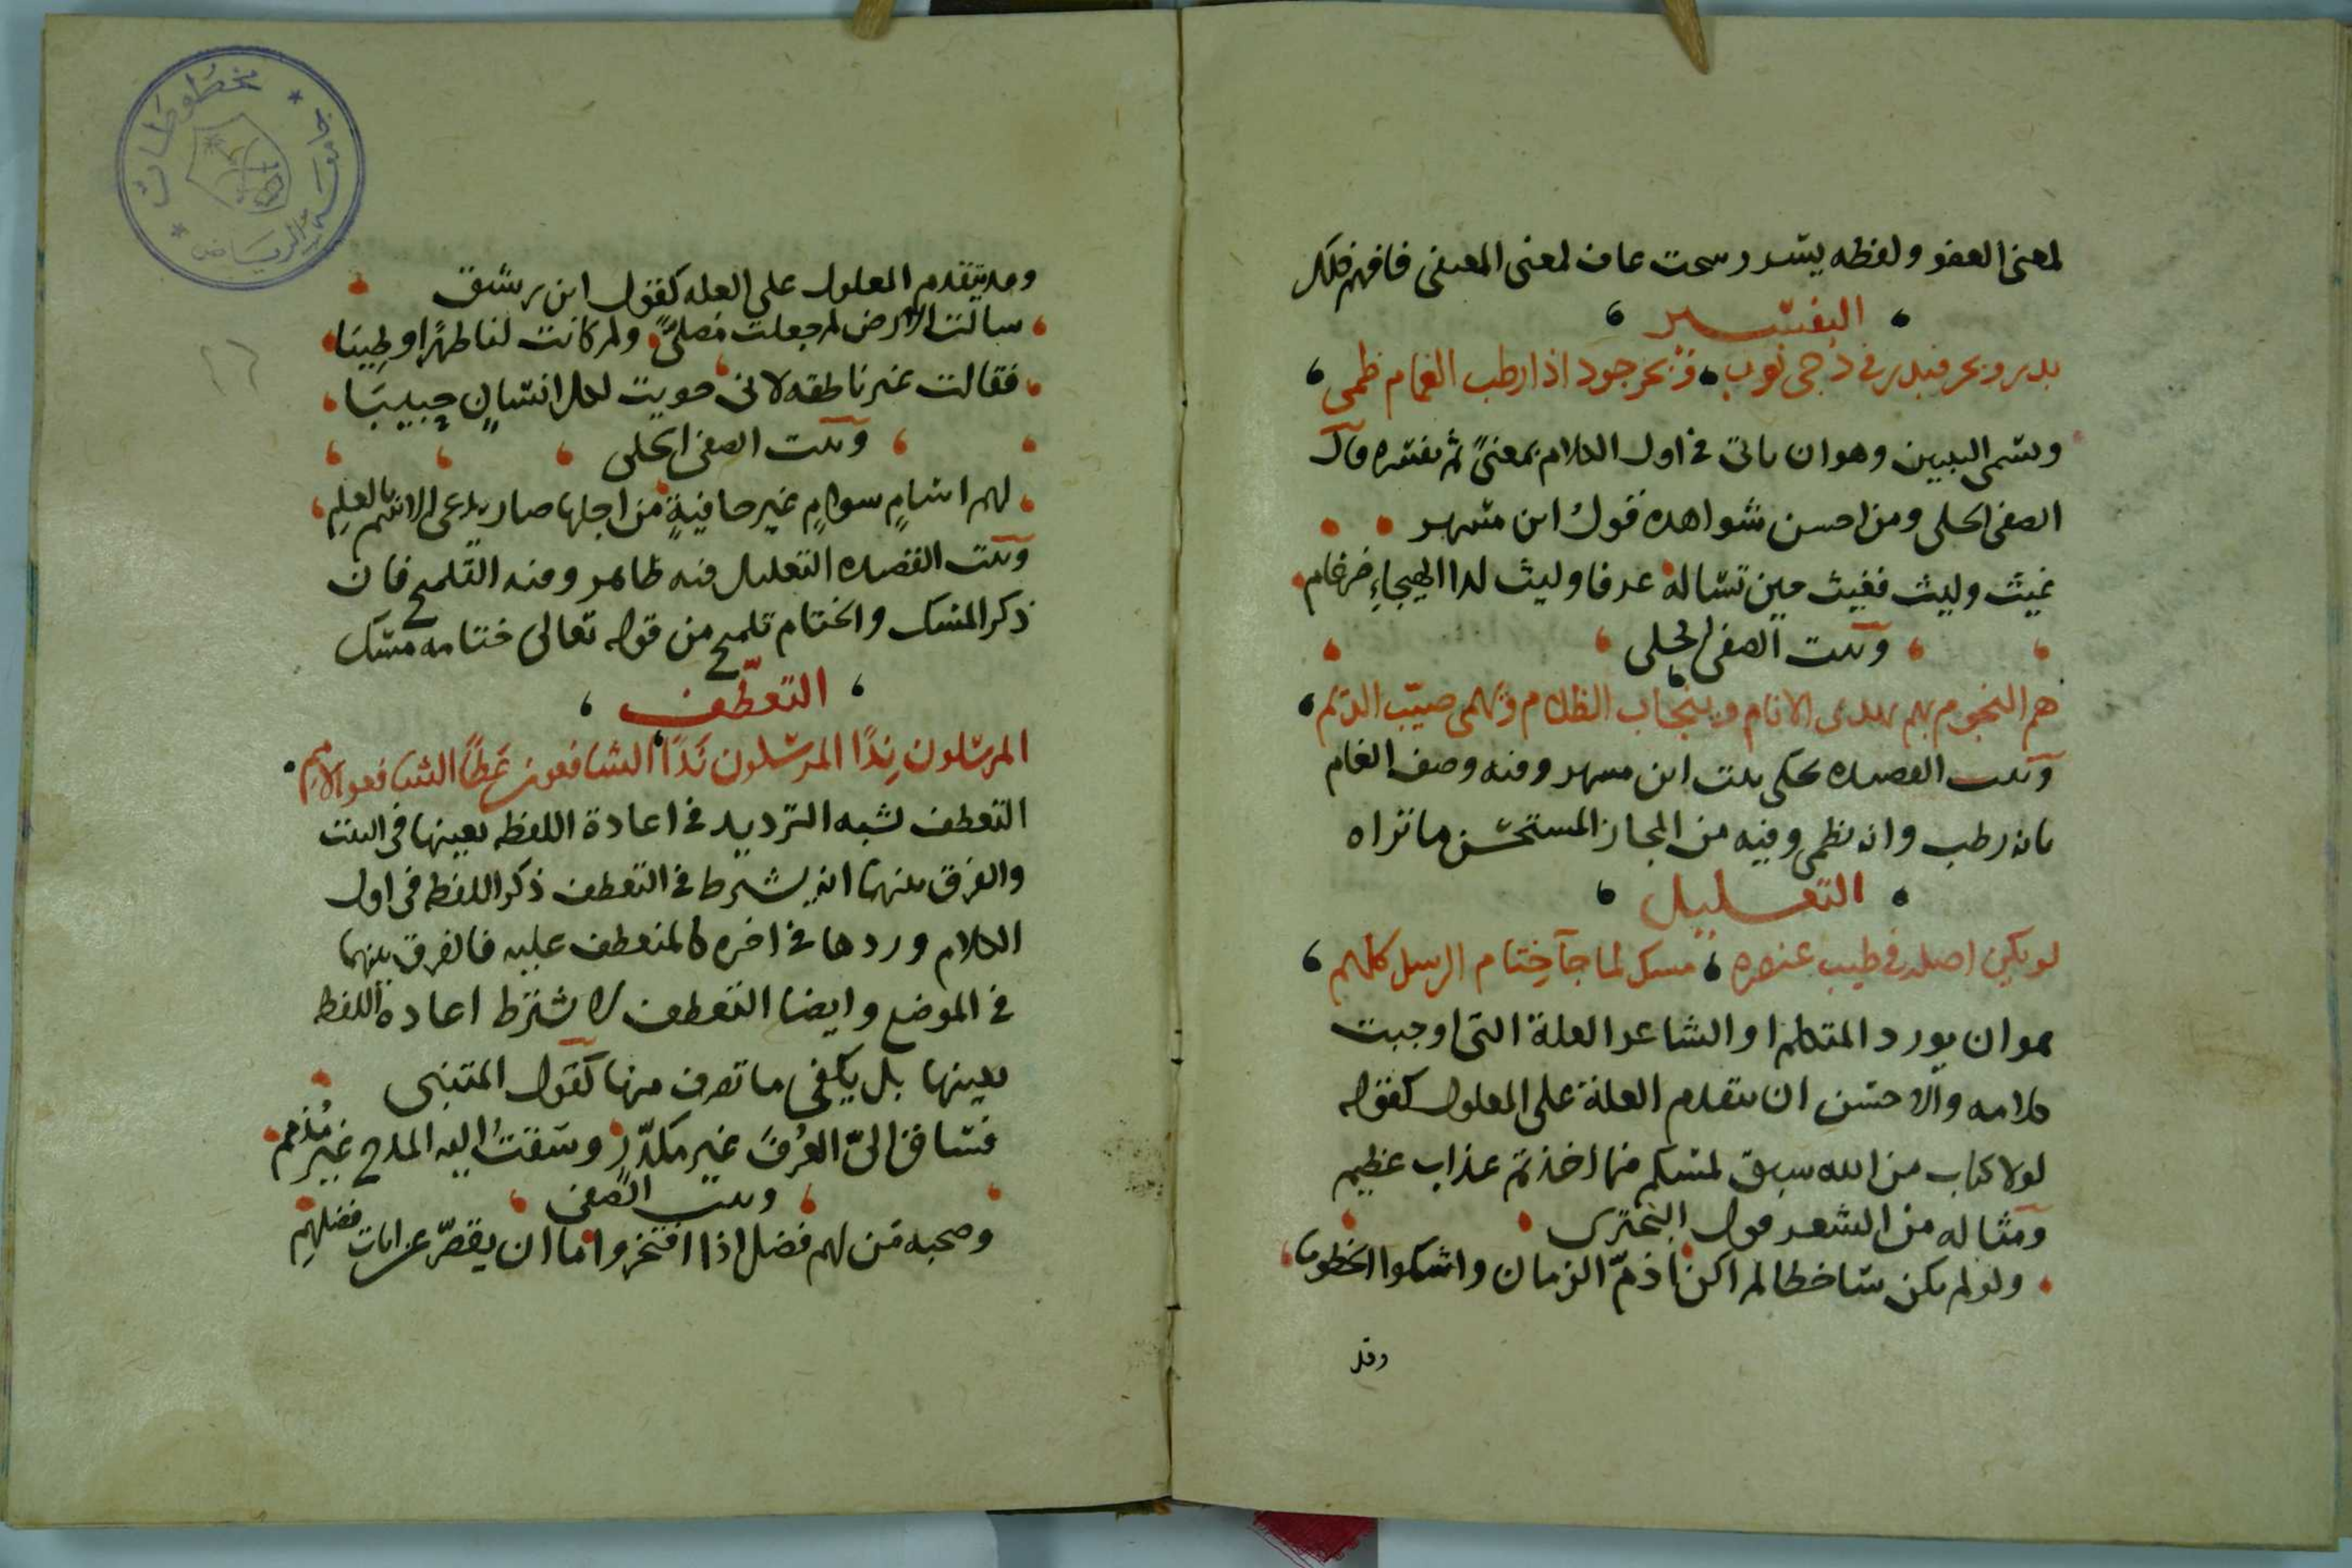 لمعنى العفو ولفظه يشد رسحت عاف لمعنى المعفى فافهم ذلك
التفسير
بدر وبحر فبدر في دجى نوب وبحر جود اذا رطب الغمام ظمى
ويسمى التبيين وهو ان ياتى في اول الكلام بمعنىً ثم يفسره قال
الصفى الحلى ومن احسن شواهده قول ابن مسهر
غيث وليث فغيث حين تساله عرفا وليث لدا الهيجاءِ ضرغام
وبيت الصفى الحلى
هم النجوم بهم يهدى الانام وينجاب الظلام ويهمى صيّب الديم
وبيت القصيده يحكى بيت ابن مسهر وفيه وصف الغمام
بانه رطب وانه يظمى وفيه من المجاز المستحسن ما تراه
التعليل
لو يكن اصله في طيب عنصره مسك لما جآ ختام الرسل كلهم
هو ان يورد المتكلم او الشاعر العلة التى اوجبت
كلامه والاحسن ان يتقدم العلة على المعلول كقوله
لولا كتاب من الله سبق لمسكم فيما اخذتم عذاب عظيم
ومثاله من الشعر قول البحترى
ولو لم يكن ساخطا لم اكن اذمّ الزمان واشكوا الخطوبا
وقد
وقد يتقدم المعلول على العله كقول ابن رشيق
سالت الارض لم جعلت مصلىً ولم كانت لنا طهرًا وطيبا
فقالت غير ناطقه لانى حويت لكل انسانٍ حبيبَا
وبيت الصفى الحلى
لهم اسامٍ سوامٍ غير خافيةٍ من اجلها صار يدعى الاسم بالعلمِ
وبيت القصيده التعليل فيه ظاهر وفيه التلميح فان
ذكر المسك والختام تلميح من قوله تعالى ختامه مسك
التعطّف
المرسلون نِدًا المرسلون نَدًا الشافعون عَطًا الشافعوا الامم
التعطف يشبه الترديد في اعادة اللفظه بعينها فى البيت
والفرق بينهما انه يشترط في التعطف ذكر اللفظه فى اول
الكلام وردها في اخره كالمنعطف عليه فالفرق بينهما
في الموضع وايضا التعطف لا يشترط اعادة اللفظه
بعينها بل يكفى ما تصرف منها كقول المتنبى
فساق الىّ العُرفَ غير مكدّرٍ وسقتُ اليه المدح غير مُذمم
وبيت الصفى
وصحبه من لهم فضل اذا افتخروا ما ان يقصّر عن غايات فضلهِم
مخطوطات
جامعة الرياض